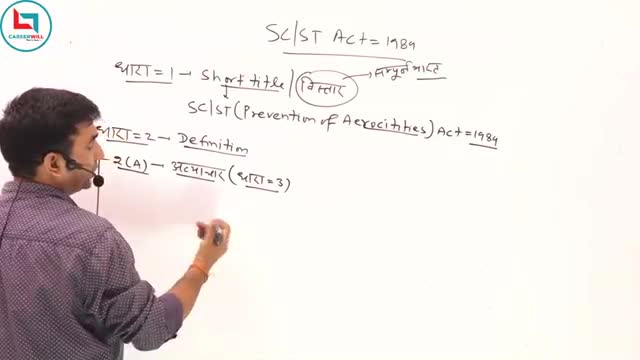 CAREERWILL
SC/ST Act = 1989
धारा = 1 → Short title / विस्तार → सम्पूर्ण भारत
SC/ST (Prevention of Aerocitities) Act = 1989
धारा = 2 → Definition
2(A) → अत्याचार (धारा = 3)